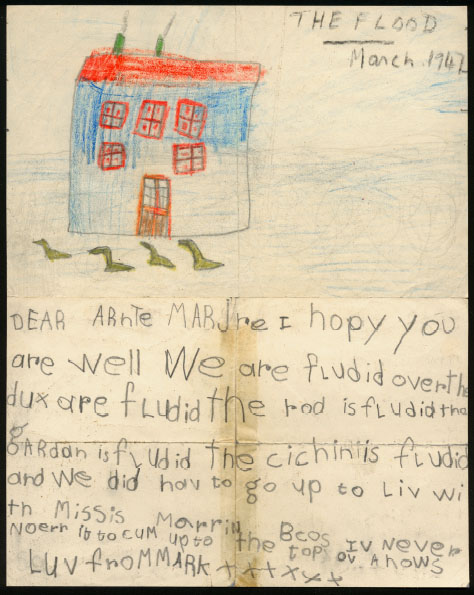 THE FLOOD
March 1947
DEAR ARNTE MARJre I hopy you
are well We are fLudid over the
dux are fLudid the rod is fLudid tha
g
GARdan is fLudid the cichin iis fludid
and We did hav to go up to Liv wi
th Missis Marrin Bcos IV Never
Noerr it to cum up to the top ov A hows
LUV froMMARK x x x x x x